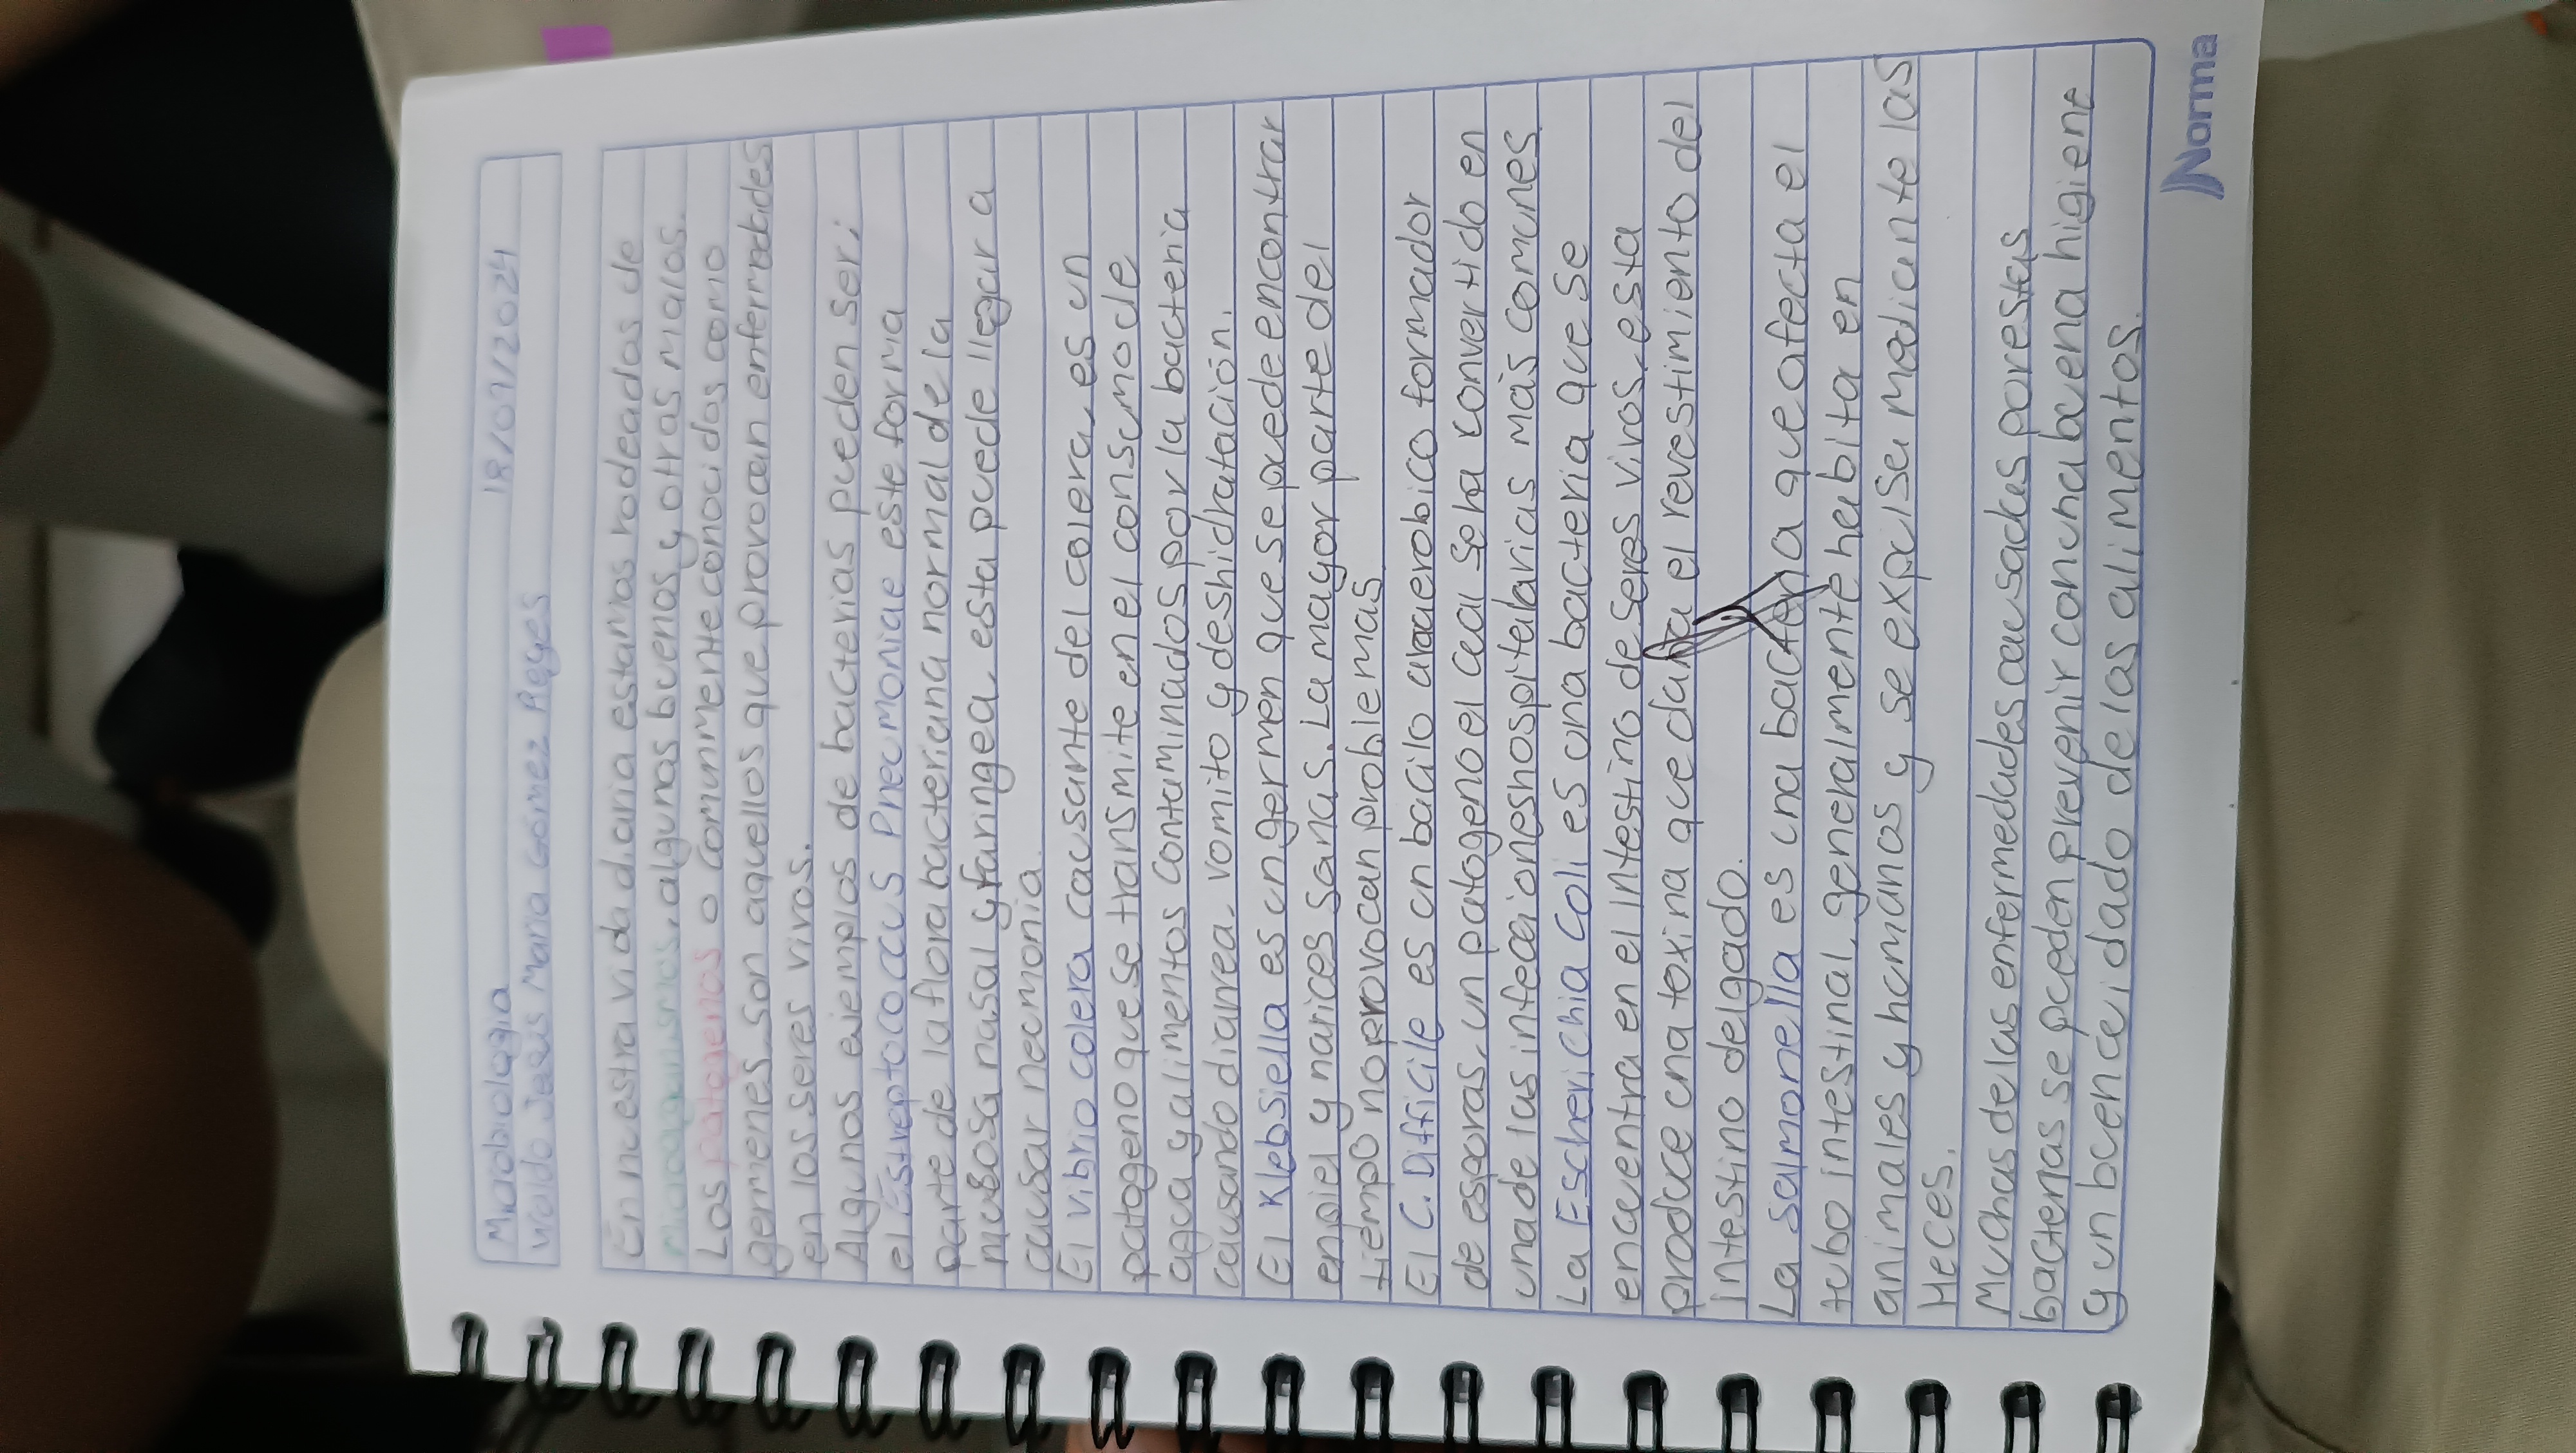 Microbiologia
Waldo Jesús Maria Gómez Reyes 18/01/2024
En nuestra vida diaria estamos rodeados de
Microorganismos, algunos buenos y otras malos.
Los patogenos o comunmente conocidos como
germenes, son aquellos que provocan enfermedades
en los seres vivos.
Algunos ejemplos de bacterias pueden ser;
el Estreptococcus Pneumoniae este forma
parte de la flora bacteriana normal de la
mucosa nasal y faringea, esta puede llegar a
causar neumonia.
El Vibrio colera causante del colera, es un
patogeno que se transmite en el consumo de
agua y alimentos contaminados por la bacteria
causando diarrea, vomito y deshidratación.
El Klebsiella es un germen que se puede encontrar
en piel y narices sanas. La mayor parte del
tiempo no provocan problemas
El C. Difficile es un bacilo anaerobico formador
de esporas, un patogeno el cual se ha convertido en
una de las infecciones hospitalarias más comunes
La Escherichia Coli es una bacteria que se
encuentra en el intestino de seres vivos, esta
produce una toxina que daña el revestimiento del
intestino delgado.
La Salmonella es una bacteria que afecta el
tubo intestinal, generalmente habita en
animales y humanos y se expulsa mediante las
Heces.
Muchas de las enfermedades causadas por estas
bacterias se pueden prevenir con una buena higiene
y un buen cuidado de las alimentos.
Norma